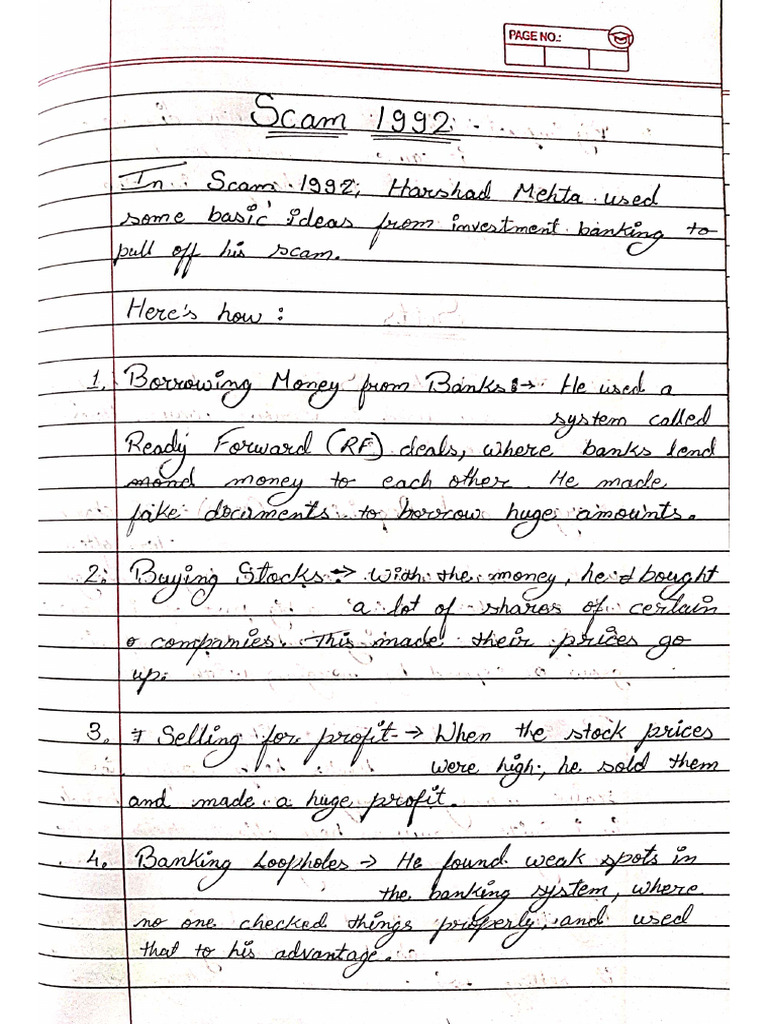 PAGE NO.:
Scam 1992
In Scam 1992, Harshad Mehta used
some basic ideas from investment banking to
pull off his scam.
Here's how :
1. Borrowing Money from Banks :→ He used a
system called
Ready Forward (RF) deals, where banks lend
mond money to each other. He made
fake documents to borrow huge amounts.
2. Buying Stocks → With the money, he bought
a lot of shares of certain
companies. This made their prices go
up.
3. Selling for profit → When the stock prices
were high, he sold them
and made a huge profit.
4. Banking Loopholes → He found weak spots in
the banking system, where
no one checked things properly, and used
that to his advantage.